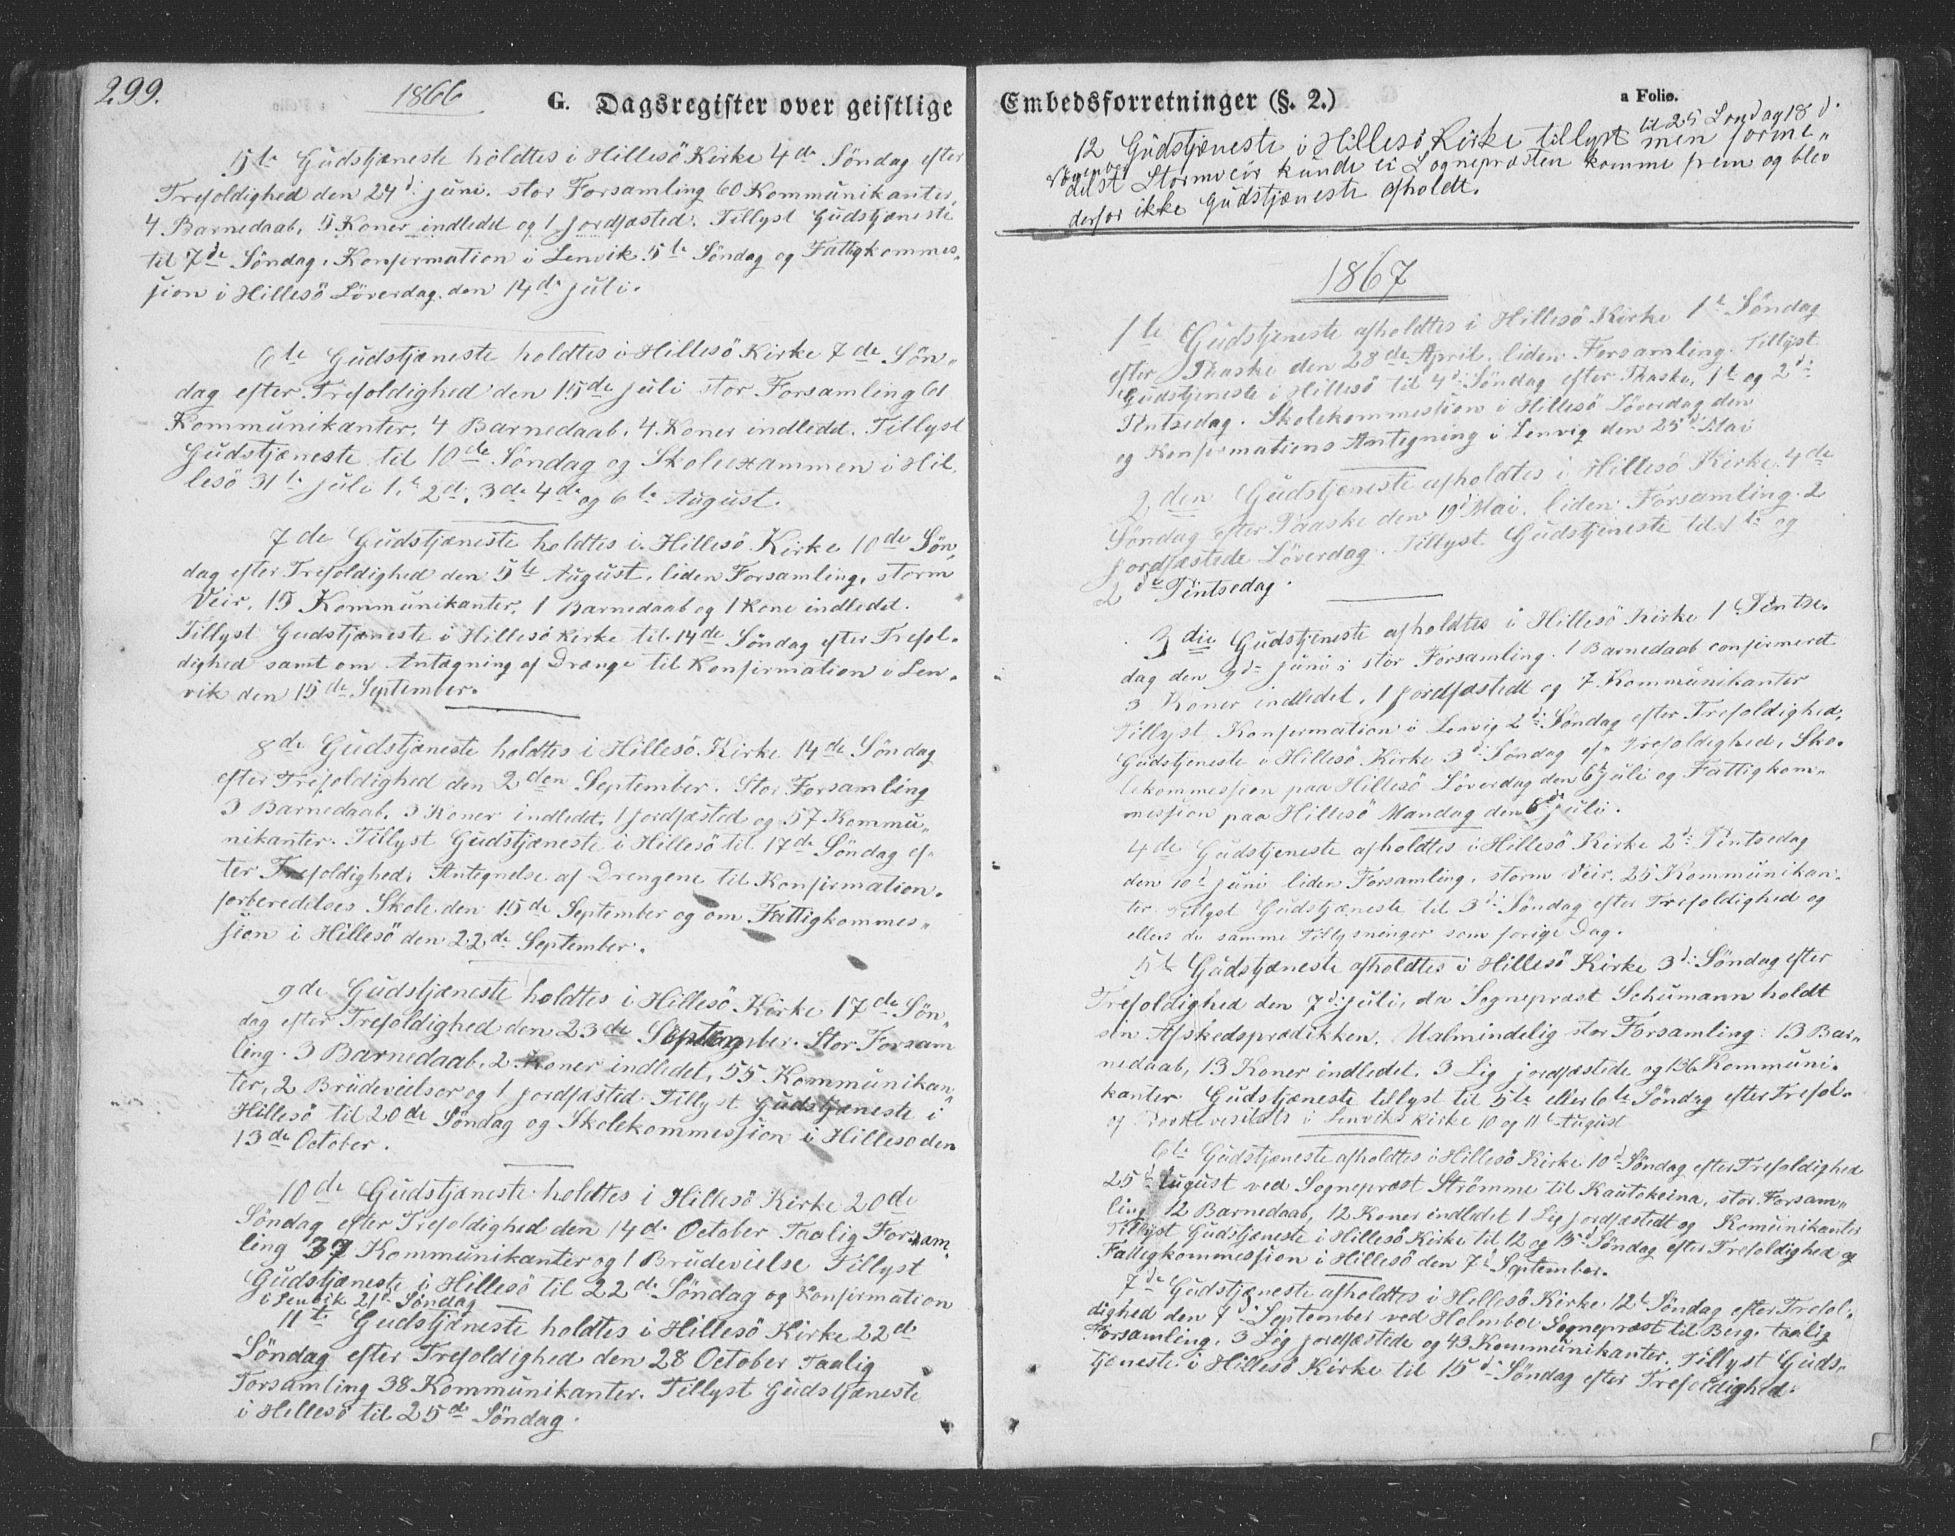 299.
1866
G. Dagsregister over geistlige
5te Gudstjæneste holdtes i Hillesö Kirke 4de Söndag efter
Trefoldighed den 24d: juni. stor Forsamling 60 Kommunikanter,
4 Barnedaab, 5 Koner indledet og 1 jordfæsted. Tillyst Gudstjæneste
til 7de Söndag, Konfirmation i Lenvik 5te Söndag og Fattigkommes„
sion i Hillesö Löverdag den 14de juli.
6te Gudstjæneste holdtes i Hillesö Kirke 7de Sön„
dag efter Trefoldighed den 15de juli stor Forsamling 61
Kommunikanter, 4 Barnedaab, 4 Koner indledet. Tillyst
Gudstjæneste til 10de Söndag og Skoleexammen i Hil„
lesö 31te juli 1,t 2d, 3de 4de og 6te August.
7de Gudstjæneste holdtes i Hillesö Kirke 10de Sön„
dag efter Trefoldighed den 5te August, liden Forsamling, storm
Veir, 15 Kommunikanter, 1 Barnedaab og 1 Kone indledet.
Tillyst Gudstjæneste i Hillesö Kirke til 14de Söndag efter Trefol„
dighed samt om Antægning af Drænge til Konfirmation i Len„
vik den 15de September.
8de Gudstjæneste holdtes i Hillesö Kirke 14de Söndag
efter Trefoldighed den 2den September. Stor Forsamling
3 Barnedaab, 3 Koner indledet, 1 jordfæsted og 57 Kommu„
nikanter. Tillyst Gudstjæneste i Hillesö til 17de Söndag ef„
ter Trefoldighed, Antegnelse af Drengene til Konfirmation„
forberedelses Skole den 15de September og om Fattigkommes„
sion i Hillesö den 22de September.
9de Gudstjæneste holdtes i Hillesö Kirke 17de Sön„
dag efter Trefoldighed den 23de September. Stor Forsam
ling. 3 Barnedaab, 2 Koner indledet, 55 Kommunikan„
ter, 2 Brudevielser og 1 jordfæsted. Tillyst Gudstjæneste i
Hillesö til 20de Söndag og Skolekommession i Hillesö den
13de October.
10de Gudstjæneste holdtes i Hillesö Kirke 20de
Söndag efter Trefoldighed den 14de October Taalig Forsam„
ling 37 Kommunikanter og 1 Brudevielse Tillyst
Gudstjæneste i Hillesö til 22de Söndag og Konfirmation
i Lenvik 21d Söndag
11te Gudstjæneste holdtes i Hillesö Kirke 22de
Söndag efter Trefoldighed den 28 October Taalig
Forsamling 38 Kommunikanter. Tillyst Gudstjæneste
i Hillesö til 25de Söndag.
Embedsforretninger (§. 2.)
a Folio.
til 25 Söndag 18 d.
12 Gudstjæneste i Hillesö Kirke tillyst men forme„
November
delst Stormveir kunde ei Sognepræsten komme frem og blev
derfor ikke Gudstjæneste afholdt.
1867
1te Gudstjeneste afholdtes i Hillesö Kirke 1t Söndag
efter Paaske den 28de April, liden Forsamling. Tillyst
Gudstjeneste i Hillesö til 4d: Söndag efter Paaske, 1t og 2d:
Pintsedag. Skolekommession i Hillesö Löverdag den
og Konfirmations Antegning i Lenvig den 25d Mai
2den Gudstjeneste afholdtes i Hillesö Kirke 4de
Söndag efter Paaske den 19d Mai, liden Forsamling. 2
jordfæstede Löverdag. Tillyst Gudstjeneste til 1te og
2de Pintsedag.
3die Gudstjeneste afholdtes i Hillesö Kirke 1 Pintse„
dag den 9de juni: stor Forsamling. 1 Barnedaab confirmeret
3 Koner indledet, 1 jordfæstedt og 7 Kommunikanter
Tillyst Konfirmation i Lenvig 2d: Söndag efter Trefoldighed,
Gudstjeneste i Hillesö Kirke 3d: Söndag ef„ Trefoldighed, Sko„
lekommession paa Hillesö Löverdag den 6t juli og Fattigkom„
mession paa Hillesö Mandag den 8de juli.
4de Gudstjeneste afholdtes i Hillesö Kirke 2d: Pintsedag
den 10d juni liden Forsamling, storm Veir, 25 Kommunikan„
ter. Tillyst Gudstjæneste til 3d: Söndag efter Trefoldighed og
ellers de samme Tillysninger som forige Dag.
5t Gudstjæneste afholdtes i Hillesö Kirke 3d: Söndag efter
Trefoldighed den 7d: juli, da Sognepræst Schumann holdt
sin Afskedsprædikken. Ualmindelig stor Forsamling: 13 Bar„
nedaab, 13 Koner indledet. 3 Lig jordfæstede og 136 Kommuni„
kanter Gudstjæneste tillyst til 5te eller 6te Söndag efter Trefol„
og visitats i Lenviks Kirke 10 og 11t August
6te Gudstjæneste afholdtes i Hillesö Kirke 10d Söndag efter Trefoldighed
25d August ved Sognepræst Strömme til Kautokeina, stor Forsam„
ling 12 Barnedaab, 12 Koner indledet 1 Lig jordfæstedt og Komunikanter
Tillyst Gudstjæneste i Hillesö Kirke til 12 og 15d Söndag efter Trefoldighed og
Fattigkommession i Hillesö den 7d September.
7de Gudstjæneste afholdtes i Hillesö Kirke 12t Söndag efter Trefol„
dighed den September ved Holmboe Sognepræst til Berg, taalig
Forsamling, 3 Lig jordfæstede og 43 Kommunikanter. Tillyst Guds„
tjæneste i Hillesö Kirke til 15d: Söndag efter Trefoldighed.